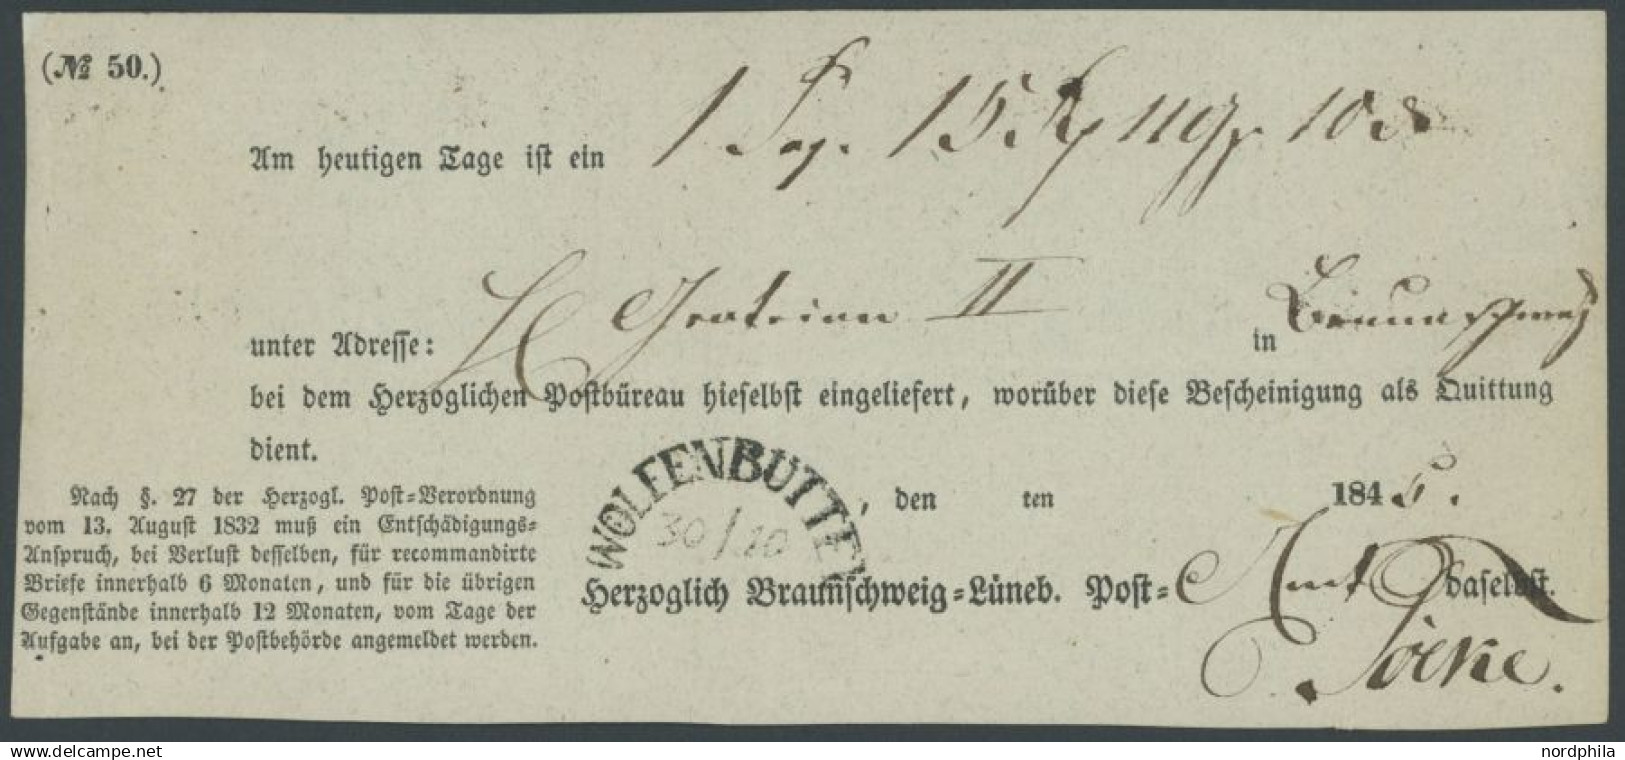 (№ 50.)
Am heutigen Tage ist ein 1
unter Adresse: II in Braunschweig
bei dem Herzoglichen Postbüreau hieselbst eingeliefert, worüber diese Bescheinigung als Quittung
dient.
WOLFENBUTTEL
30/10
, den ten 1845.
Herzoglich Braunschweig-Lüneb. Post-Amt daselbst.
Nach §. 27 der Herzogl. Post-Verordnung
vom 13. August 1832 muß ein Entschädigungs-
Anspruch, bei Verlust desselben, für recommandirte
Briefe innerhalb 6 Monaten, und für die übrigen
Gegenstände innerhalb 12 Monaten, vom Tage der
Aufgabe an, bei der Postbehörde angemeldet werden.
www.delcampe.net
nordphila